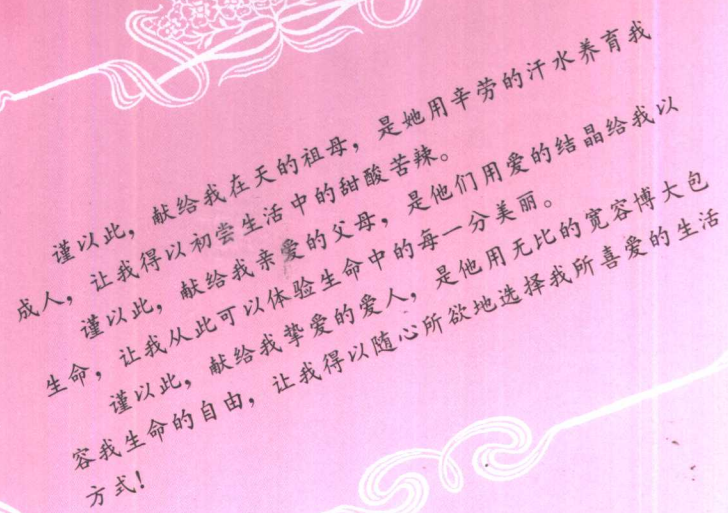 谨以此，献给我在天的祖母，是她用辛劳的汗水养育我
成人，让我得以初尝生活中的甜酸苦辣。
谨以此，献给我亲爱的父母，是他们用爱的结晶给我以
生命，让我从此可以体验生命中的每一分美丽。
谨以此，献给我挚爱的爱人，是他用无比的宽容博大包
容我生命的自由，让我得以随心所欲地选择我所喜爱的生活
方式！